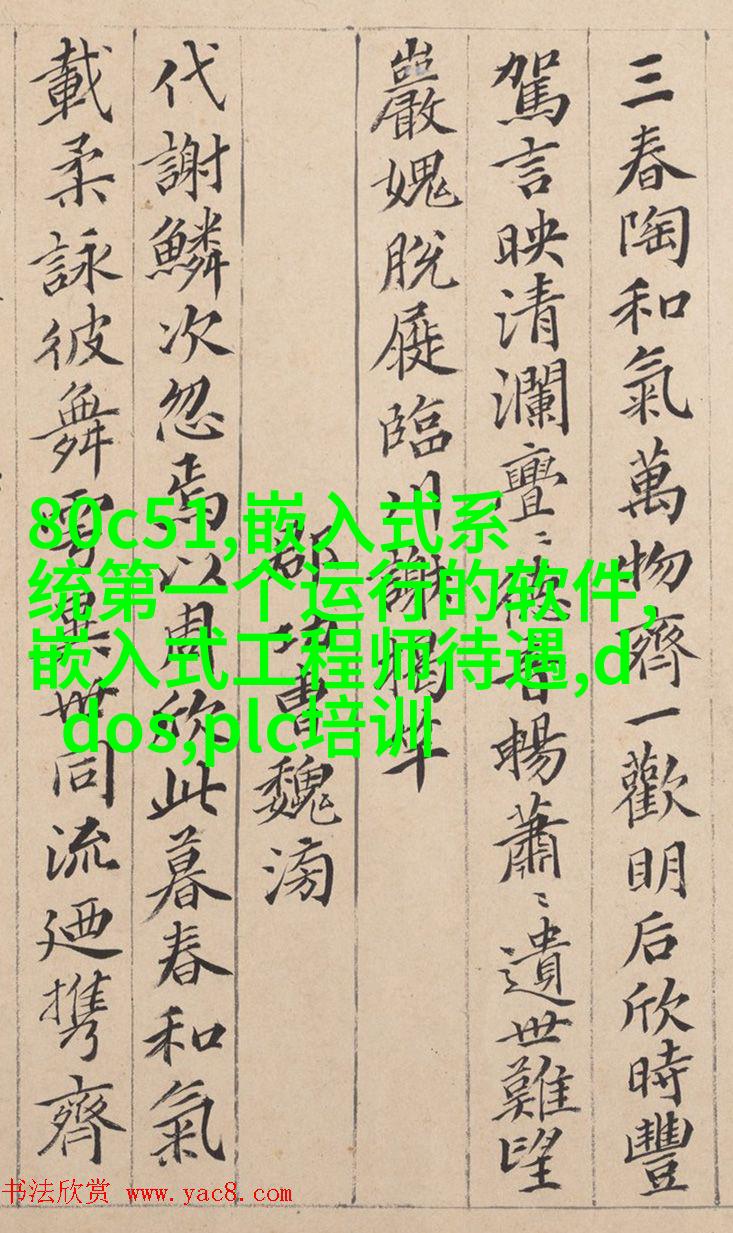 三春陶和氣萬物齊一歡明后欣時豐
駕言映清瀾亹〻德音暢蕭〻遺世難望
巖愧脫屣臨川謝揭竿
郡功曹魏滂
代謝鱗次忽焉以周欣此暮春和氣
載柔詠彼舞雩異世同流廼携齊
80c51,嵌入式系
统第一个运行的软件,
嵌入式工程师待遇,d
dos,plc培训
书法欣赏 www.yac8.com